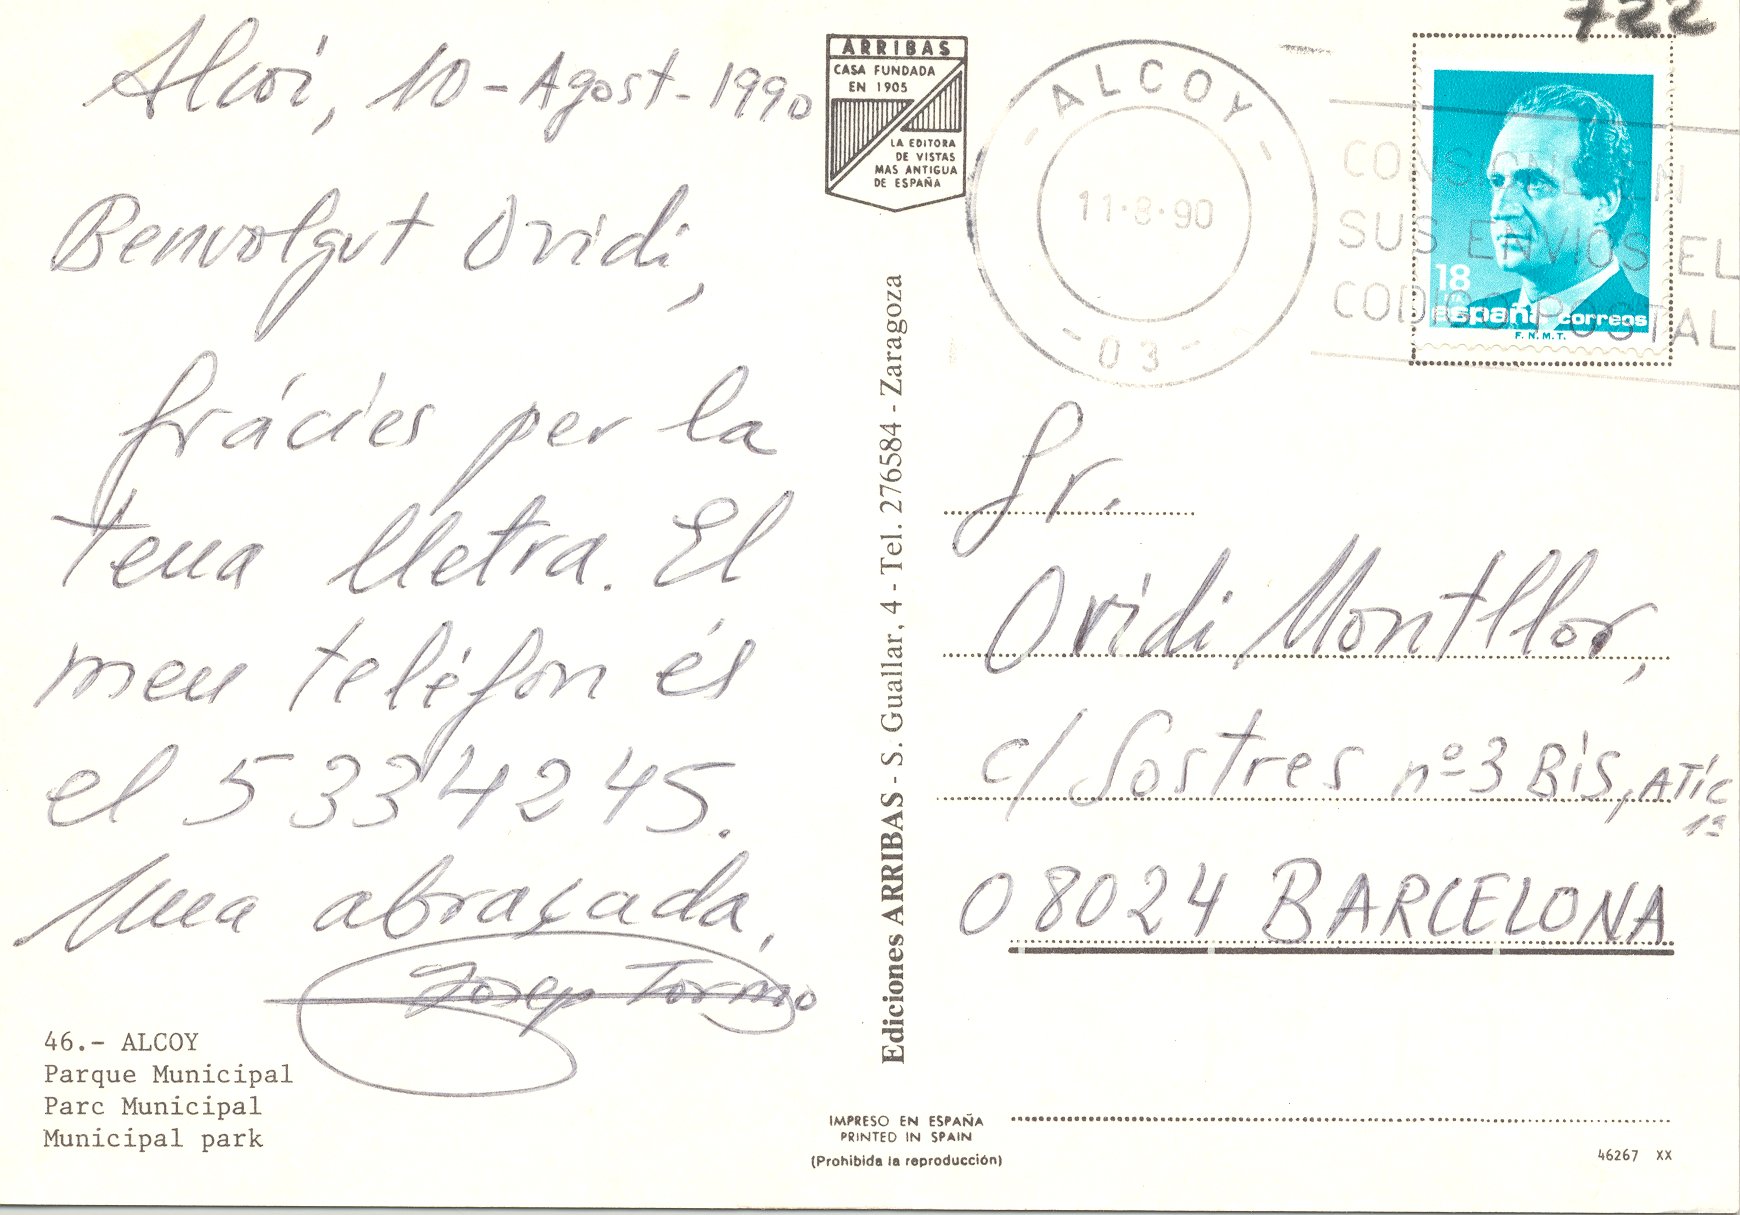 Alcoi, 10-Agost-1990
Benvolgut Ovidi,
Gràcies per la
teua lletra. El
meu telèfon és
el 5334245.
Una abraçada,
Josep Tormo
46.- ALCOY
Parque Municipal
Parc Municipal
Municipal park
ARRIBAS
CASA FUNDADA
EN 1905
LA EDITORA
DE VISTAS
MAS ANTIGUA
DE ESPAÑA
Ediciones ARRIBAS - S. Guallar, 4 - Tel. 276584 - Zaragoza
IMPRESO EN ESPAÑA
PRINTED IN SPAIN
(Prohibida la reproducción)
722
- ALCOY -
11·8·90
- 03 -
CONSIGNE EN
SUS ENVIOS EL
CODIGO POSTAL
18
españa correos
F.N.M.T.
Sr.
Ovidi Montllor,
c/ Sostres nº 3 Bis, ATIC
1ª
08024 BARCELONA
46267 XX